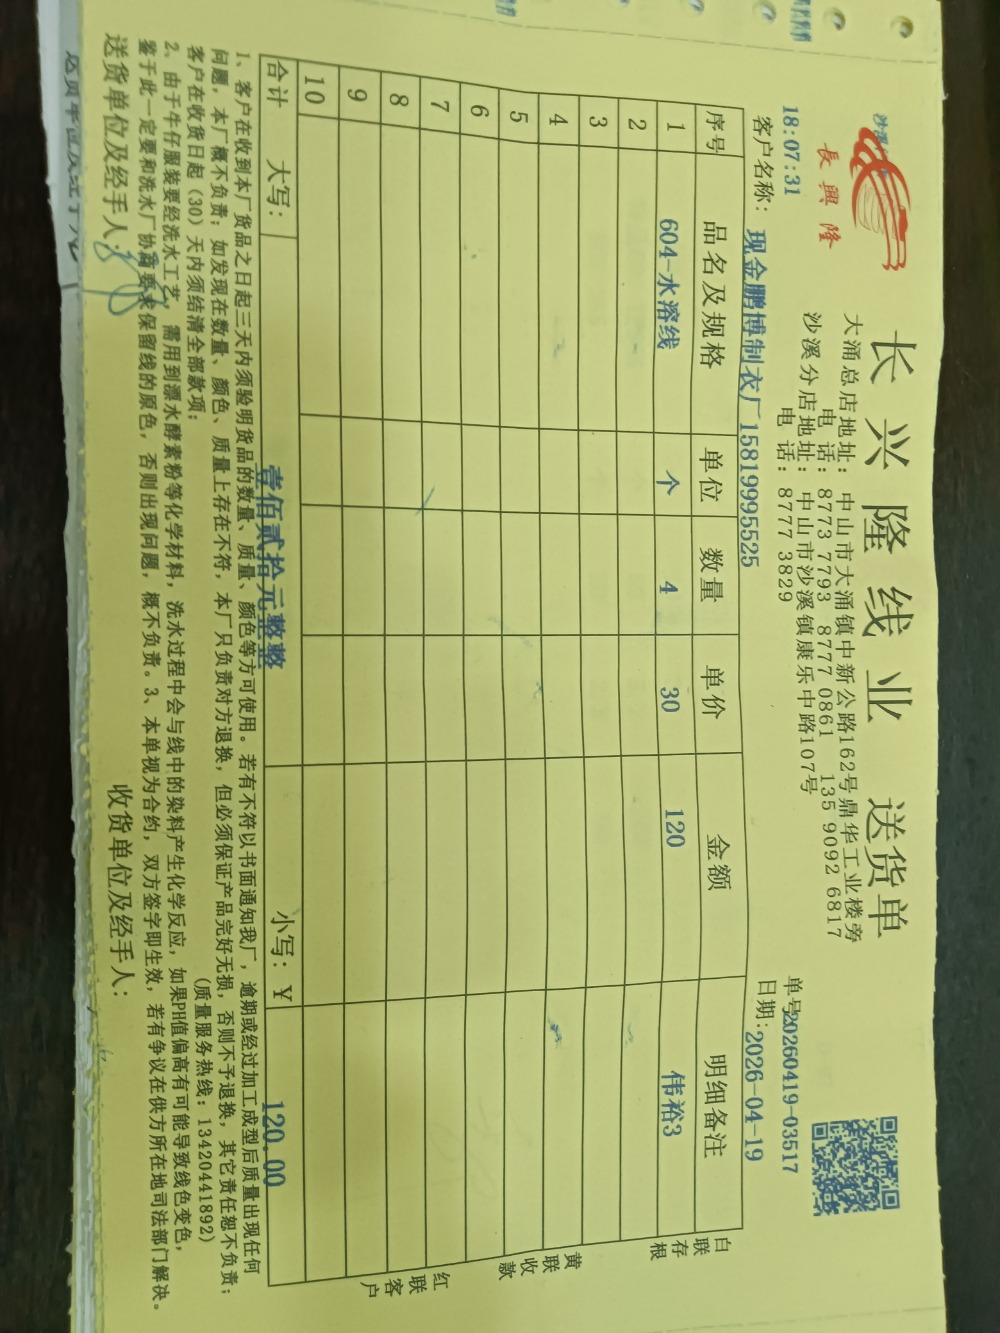 長興隆
长兴隆线业 送货单
大涌总店地址：中山市大涌镇中新公路162号鼎华工业楼旁
电 话：8773 7793 8777 0861 135 9092 6817
沙溪分店地址：中山市沙溪镇康乐中路107号
电 话：8777 3829
18:07:31
单号20260419-03517
客户名称：现金鹏博制衣厂15819995525
日期：2026-04-19
序号 品名及规格 单位 数量 单价 金额 明细备注
1 604-水溶线 个 4 30 120 伟裕3
2
3
4
5
6
7
8
9
10
合计 大写：壹佰贰拾元整整 小写：￥120.00
白联存根
黄联收款
红联客户
1、客户在收到本厂货品之日起三天内须验明货品的数量、质量、颜色等方可使用。若有不符以书面通知我厂，逾期或经过加工成型后质量出现任何
问题，本厂概不负责；如发现在数量、颜色、质量上存在不符，本厂只负责对方退换，但必须保证产品完好无损，否则不予退换，其它责任恕不负责；
客户在收货日起（30）天内须结清全部款项； (质量服务热线：13420441892)
2、由于牛仔服装要经洗水工艺，需用到漂水酵素粉等化学材料，洗水过程中会与线中的染料产生化学反应，如果PH值偏高有可能导致线色变色，
鉴于此一定要和洗水厂协商要求保留线的原色，否则出现问题，概不负责。3、本单视为合约，双方签字即生效，若有争议在供方所在地司法部门解决。
送货单位及经手人： 收货单位及经手人：